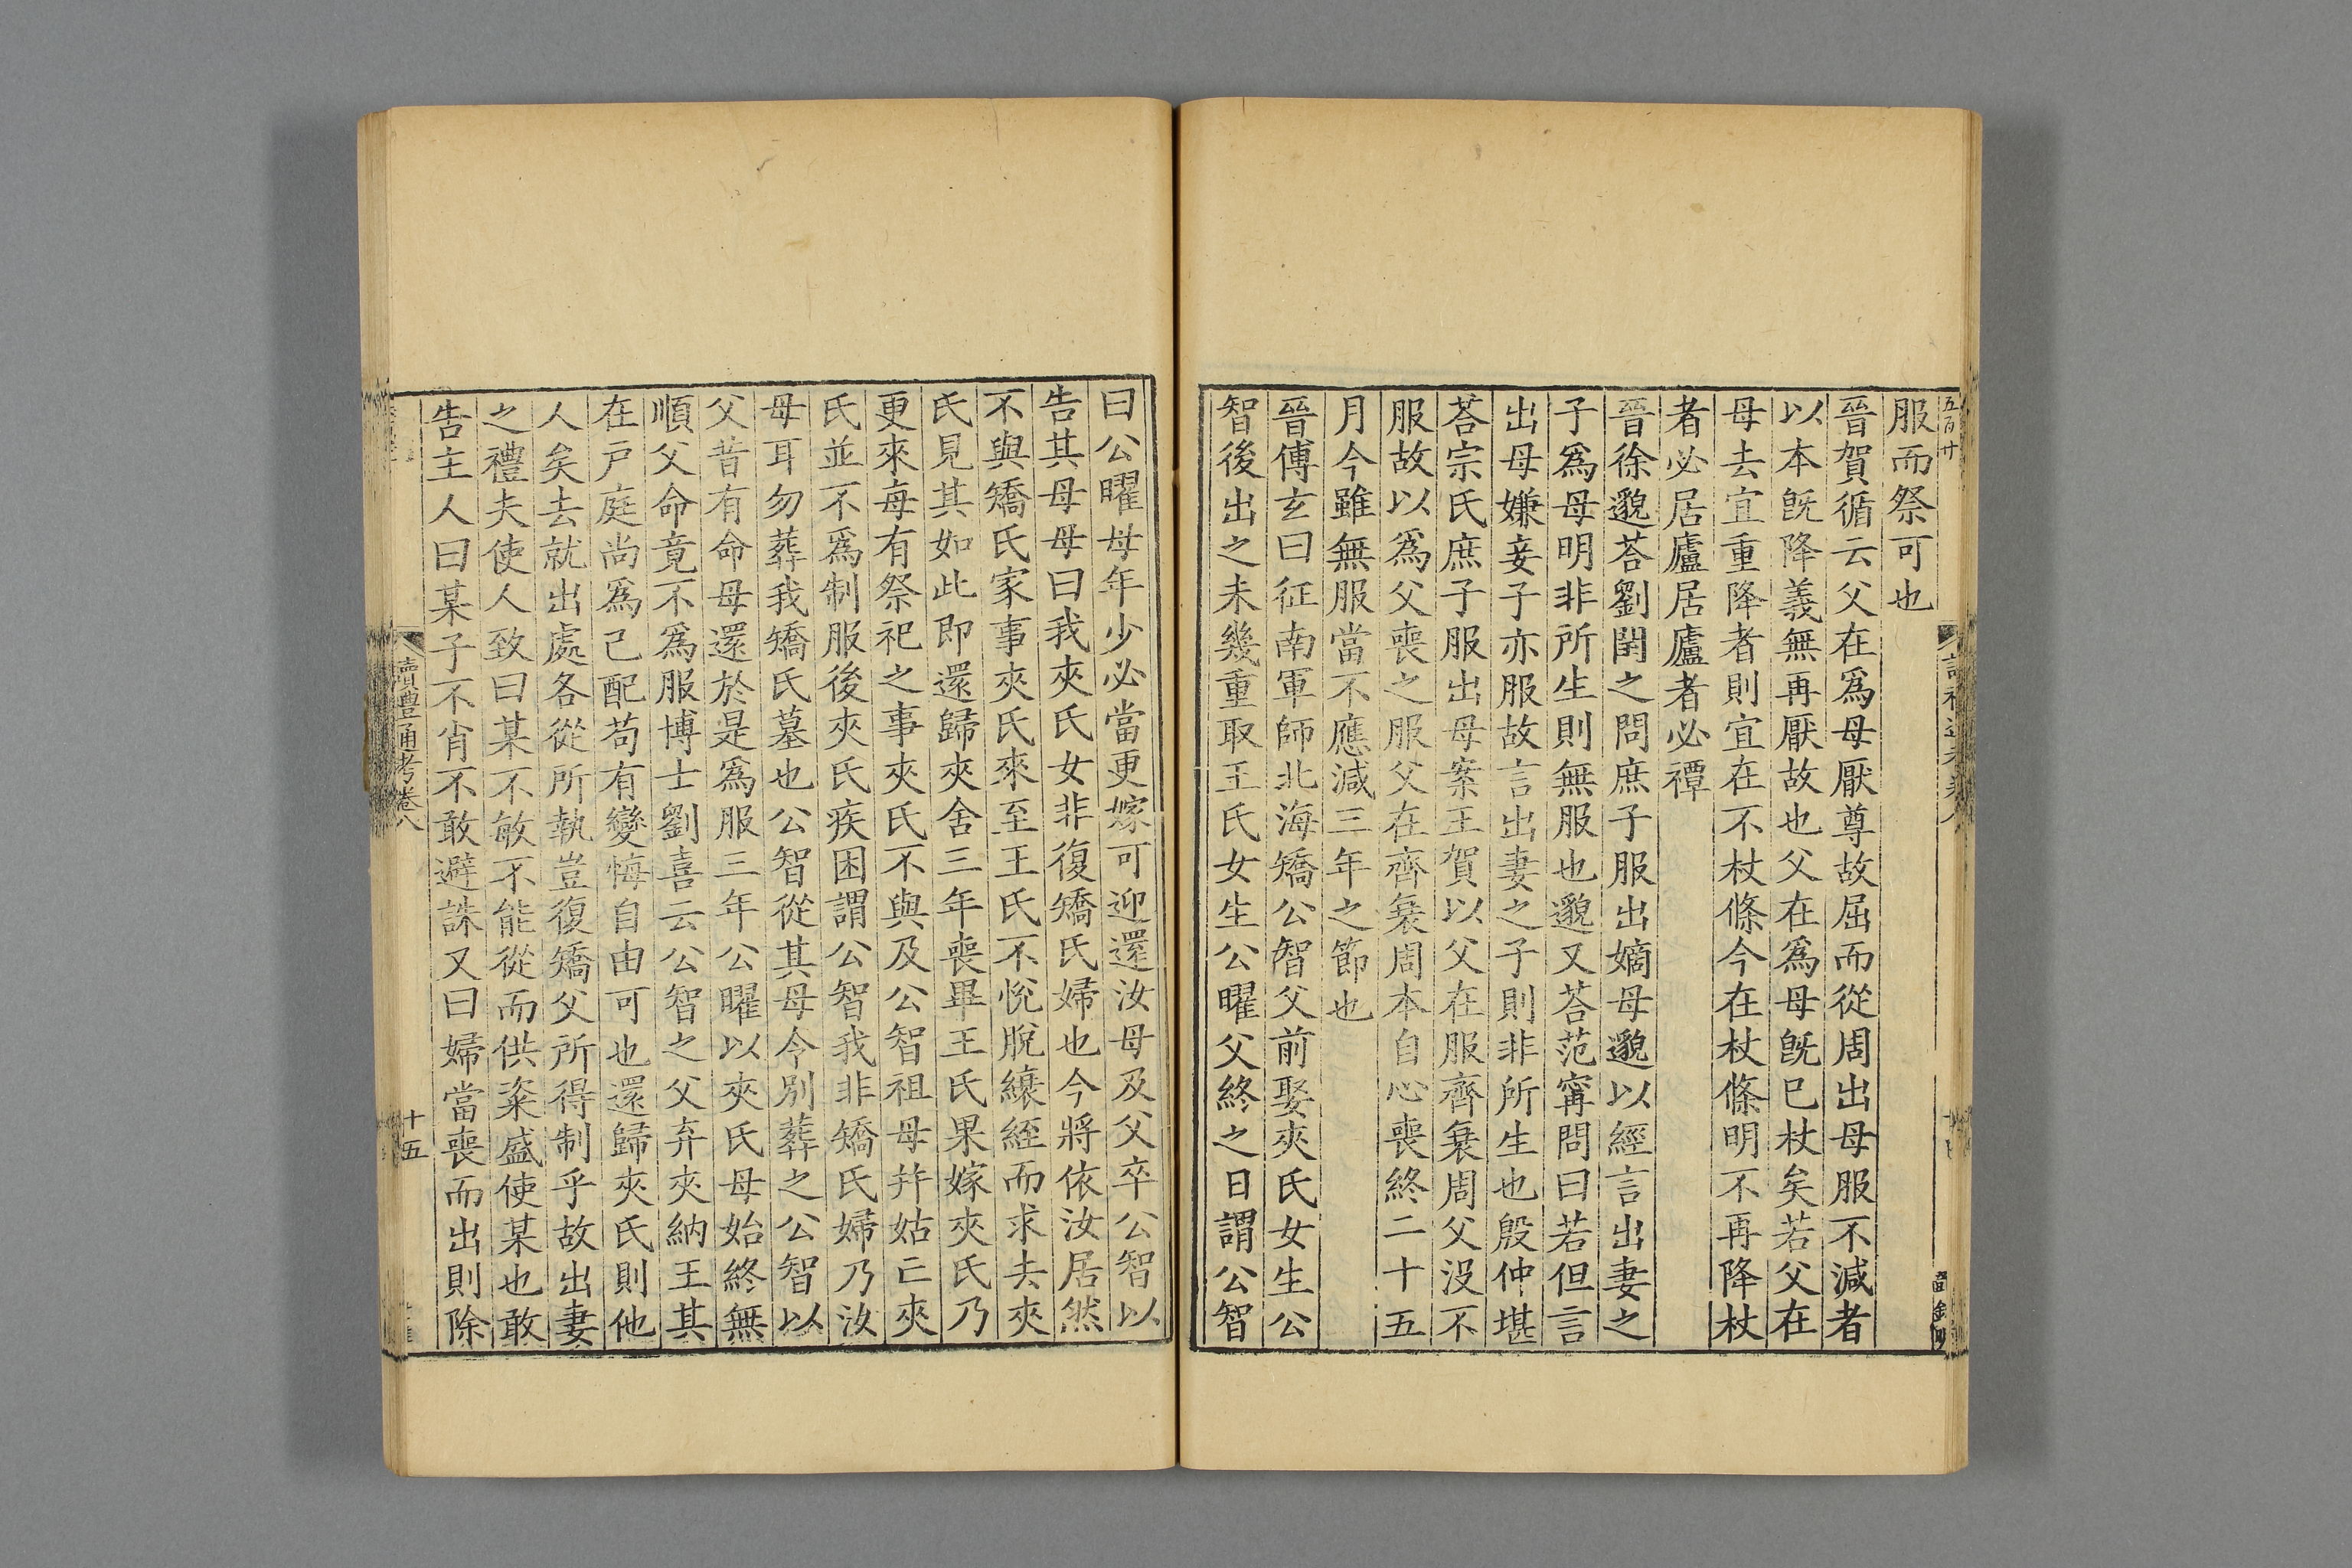 服而祭可也
晉賀循云父在爲母厭尊故屈而從周出母服不減者
以本旣降義無再厭故也父在爲母旣已杖矣若父在
母去宜重降者則宜在不杖條今在杖條明不再降杖
者必居廬居廬者必禫
晉徐邈荅劉閏之問庶子服出嫡母邈以經言出妻之
子爲母明非所生則無服也邈又荅范甯問曰若但言
出母嫌妾子亦服故言出妻之子則非所生也殷仲堪
荅宗氏庶子服出母案王賀以父在服齊衰周父没不
服故以爲父喪之服父在齊衰周本自心喪終二十五
月今雖無服當不應減三年之節也
晉傅玄曰征南軍師北海矯公智父前娶夾氏女生公
智後出之未幾重取王氏女生公曜父終之日謂公智
曰公曜母年少必當更嫁可迎還汝母及父卒公智以
告其母母曰我夾氏女非復矯氏婦也今將依汝居然
不與矯氏家事夾氏來至王氏不悅脫縗絰而求去夾
氏見其如此即還歸夾舍三年喪畢王氏果嫁夾氏乃
更來每有祭祀之事夾氏不與及公智祖母并姑亡夾
氏並不爲制服後夾氏疾困謂公智我非矯氏婦乃汝
母耳勿葬我矯氏墓也公智從其母令別葬之公智以
父昔有命母還於是爲服三年公曜以夾氏母始終無
順父命竟不爲服博士劉喜云公智之父弃夾納王其
在戶庭尚爲己配苟有變悔自由可也還歸夾氏則他
人矣去就出處各從所執豈復矯父所得制乎故出妻
之禮夫使人致曰某不敏不能從而供粢盛使某也敢
告主人曰某子不肖不敢避誅又曰婦當喪而出則除
讀禮通考卷八
十五